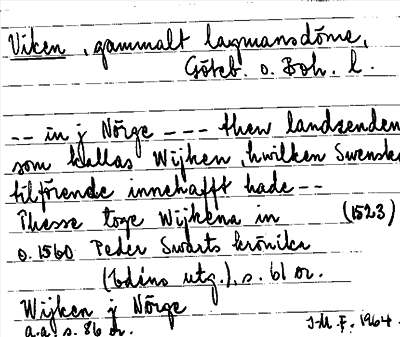 Viken, gammalt lagmansdöme,
Göteb. o. Boh. l.
-- in j Nörge --- then landzenden
som kallas Wijken, hwilken Swenske
tilförende innehafft hade --
Thesse toge Wijkena in (1523)
o. 1560 Peder Swarts krönika
(Edéns utg.), s. 61 or.
Wijken j Nörge
a.a. s. 86 or. J.M.F. 1964.